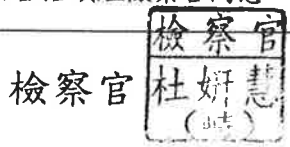 檢察官
檢察官
杜妍慧